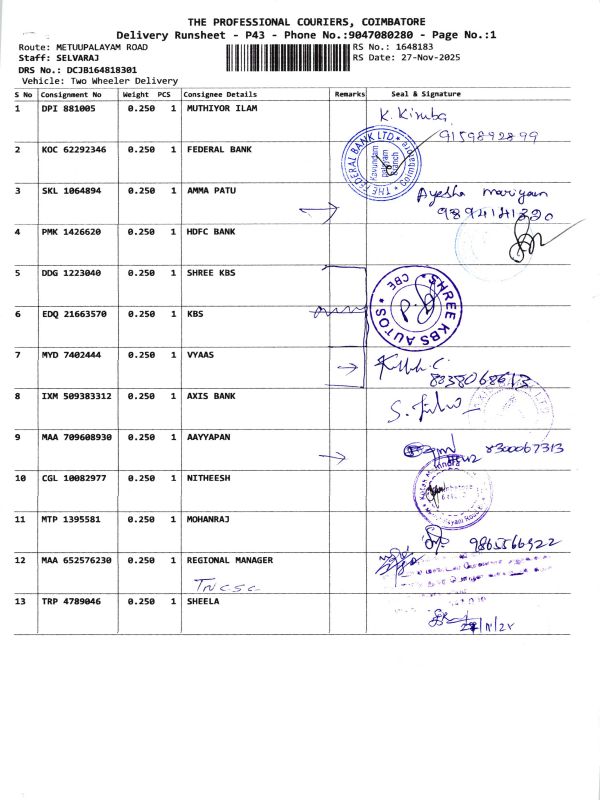 THE PROFESSIONAL COURIERS, COIMBATORE
Delivery Runsheet - P43 - Phone No.:9047080280 - Page No.:1
Route: METUUPALAYAM ROAD RS No.: 1648183
Staff: SELVARAJ RS Date: 27-Nov-2025
DRS No.: DCJB164818301
Vehicle: Two Wheeler Delivery
S No Consignment No Weight PCS Consignee Details Remarks Seal & Signature
1 DPI 881005 0.250 1 MUTHIYOR ILAM
9159892899
2 KOC 62292346 0.250 1 FEDERAL BANK THE FEDERAL BANK LTD. Coimbatore Branch
3 SKL 1064894 0.250 1 AMMA PATU Ayesha mariyam
9894141320
4 PMK 1426620 0.250 1 HDFC BANK
5 DDG 1223040 0.250 1 SHREE KBS SHREE KBS AUTOS CBE
6 EDQ 21663570 0.250 1 KBS
7 MYD 7402444 0.250 1 VYAAS
8 IXM 509383312 0.250 1 AXIS BANK
9 MAA 709608930 0.250 1 AAYYAPAN 8300067313
10 CGL 10082977 0.250 1 NITHEESH
11 MTP 1395581 0.250 1 MOHANRAJ 9865566922
12 MAA 652576230 0.250 1 REGIONAL MANAGER
TNCSC
13 TRP 4789046 0.250 1 SHEELA